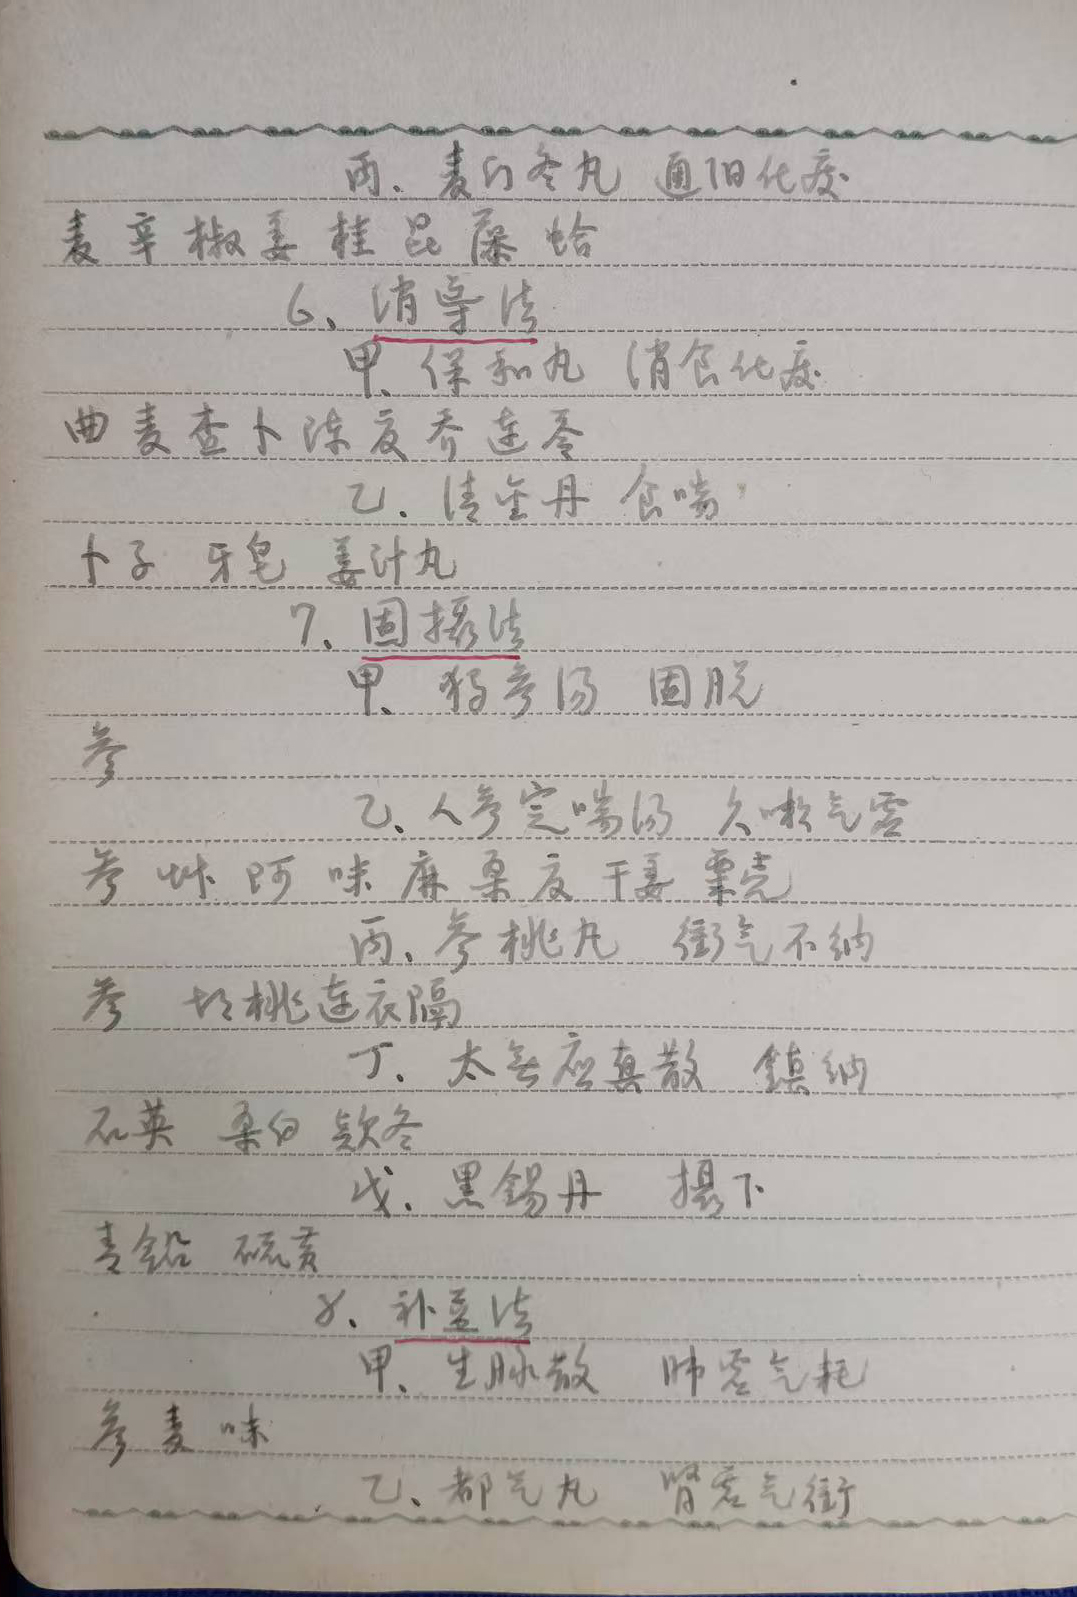 丙、麦门冬丸 通阳化痰
麦 辛 椒 姜 桂 昆 藻 蛤
6、消导法
甲、保和丸 消食化痰
曲 麦 查 卜 陈 夏 乔 连 苓
乙、清金丹 食喘
卜子 牙皂 姜汁丸
7、固摄法
甲、独参汤 固脱
参
乙、人参定喘汤 久嗽气虚
参 草 阿 味 麻 桑 夏 干姜 粟壳
丙、参桃丸 衝气不纳
参 胡桃连衣隔
丁、太无应真散 鎮纳
石英 桑白 款冬
戊、黑锡丹 摄下
青铅 硫黄
8、补益法
甲、生脉散 肺虚气耗
参 麦 味
乙、都气丸 肾虚气衝